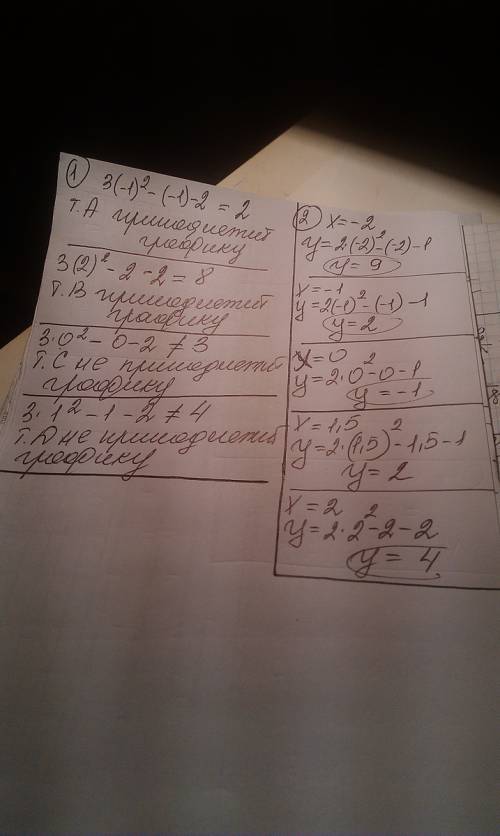 ① 3(-1)² - (-1) - 2 = 2
т. А принадлежит
графику
3(2)² - 2 - 2 = 8
т. В принадлежит
графику
3·0² - 0 - 2 ≠ 3
т. С не принадлежит
графику
3·1² - 1 - 2 ≠ 4
т. D не принадлежит
графику
② x = -2
y = 2·(-2)² - (-2) - 1
y = 9
x = -1
y = 2(-1)² - (-1) - 1
y = 2
x = 0
y = 2·0² - 0 - 1
y = -1
x = 1,5
y = 2·(1,5)² - 1,5 - 1
y = 2
x = 2
y = 2·2² - 2 - 2
y = 4